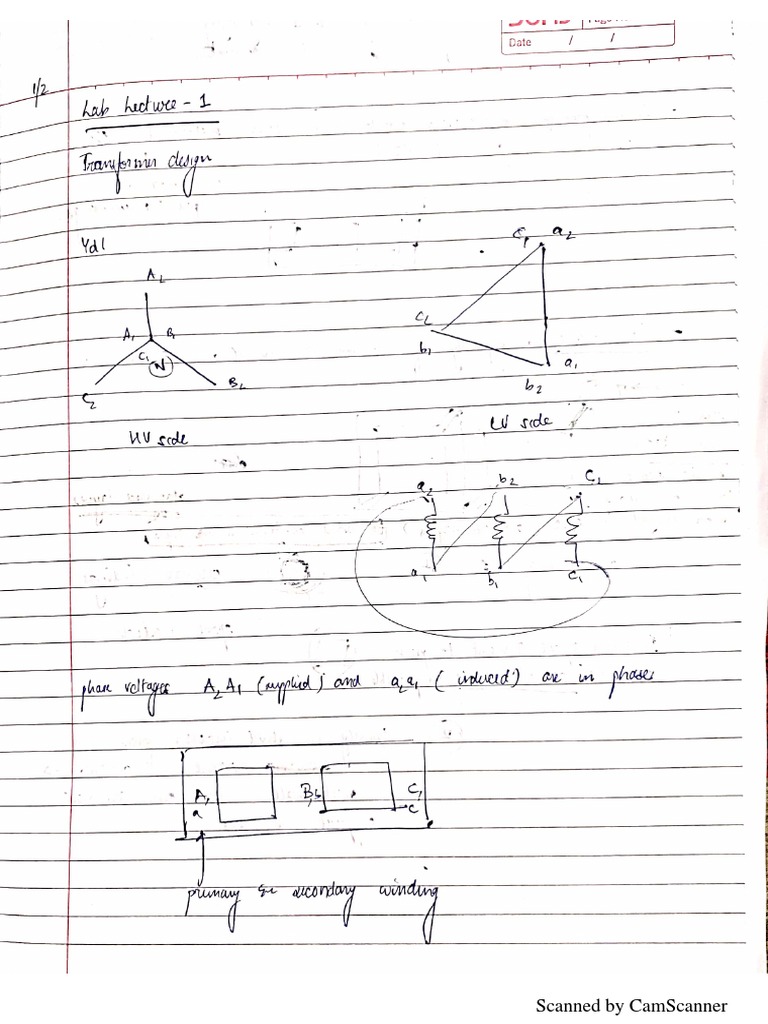 Date / /
1/2
Lab Lecture - 1
Transformer design
Yd1
A2
A1 B1
C1 N
C2 B2
HV side
C1 a2
C2
b1
a1
b2
LV side
a2 b2 C2
a1 b1 C1
phase voltages A2A1 (supplied) and a2a1 (induced) are in phase
A, B,b C,
a c
primary & secondary winding
Scanned by CamScanner